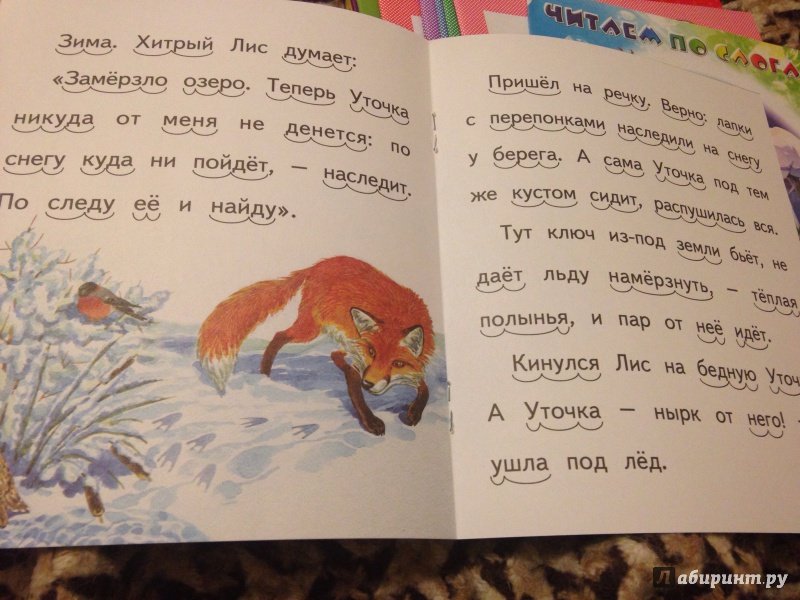 ЧИТАЕМ ПО СЛОГА
Зима. Хитрый Лис думает:
«Замёрзло озеро. Теперь Уточка
никуда от меня не денется: по
снегу куда ни пойдёт, — наследит.
По следу её и найду».
Пришёл на речку. Верно: лапки
с перепонками наследили на снегу
у берега. А сама Уточка под тем
же кустом сидит, распушилась вся.
Тут ключ из-под земли бьёт, не
даёт льду намёрзнуть, — тёплая
полынья, и пар от неё идёт.
Кинулся Лис на бедную Уточ
А Уточка — нырк от него! -
ушла под лёд.
Лабиринт.ру